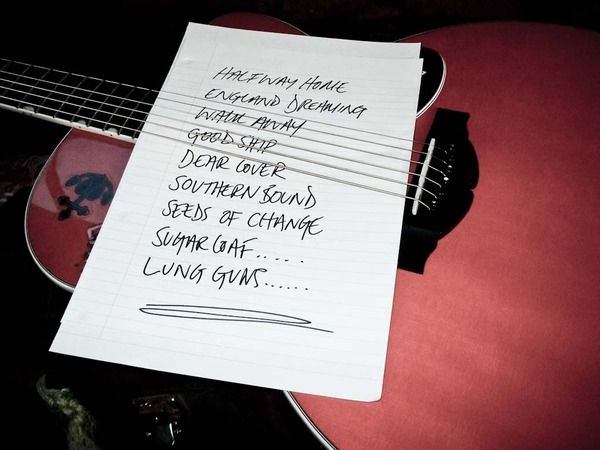 HALFWAY HOME
ENGLAND DREAMING
WALK AWAY
GOOD SHIP
DEAR LOVER
SOUTHERN BOUND
SEEDS OF CHANGE
SUGAR LOAF.....
LUNG GUNS......